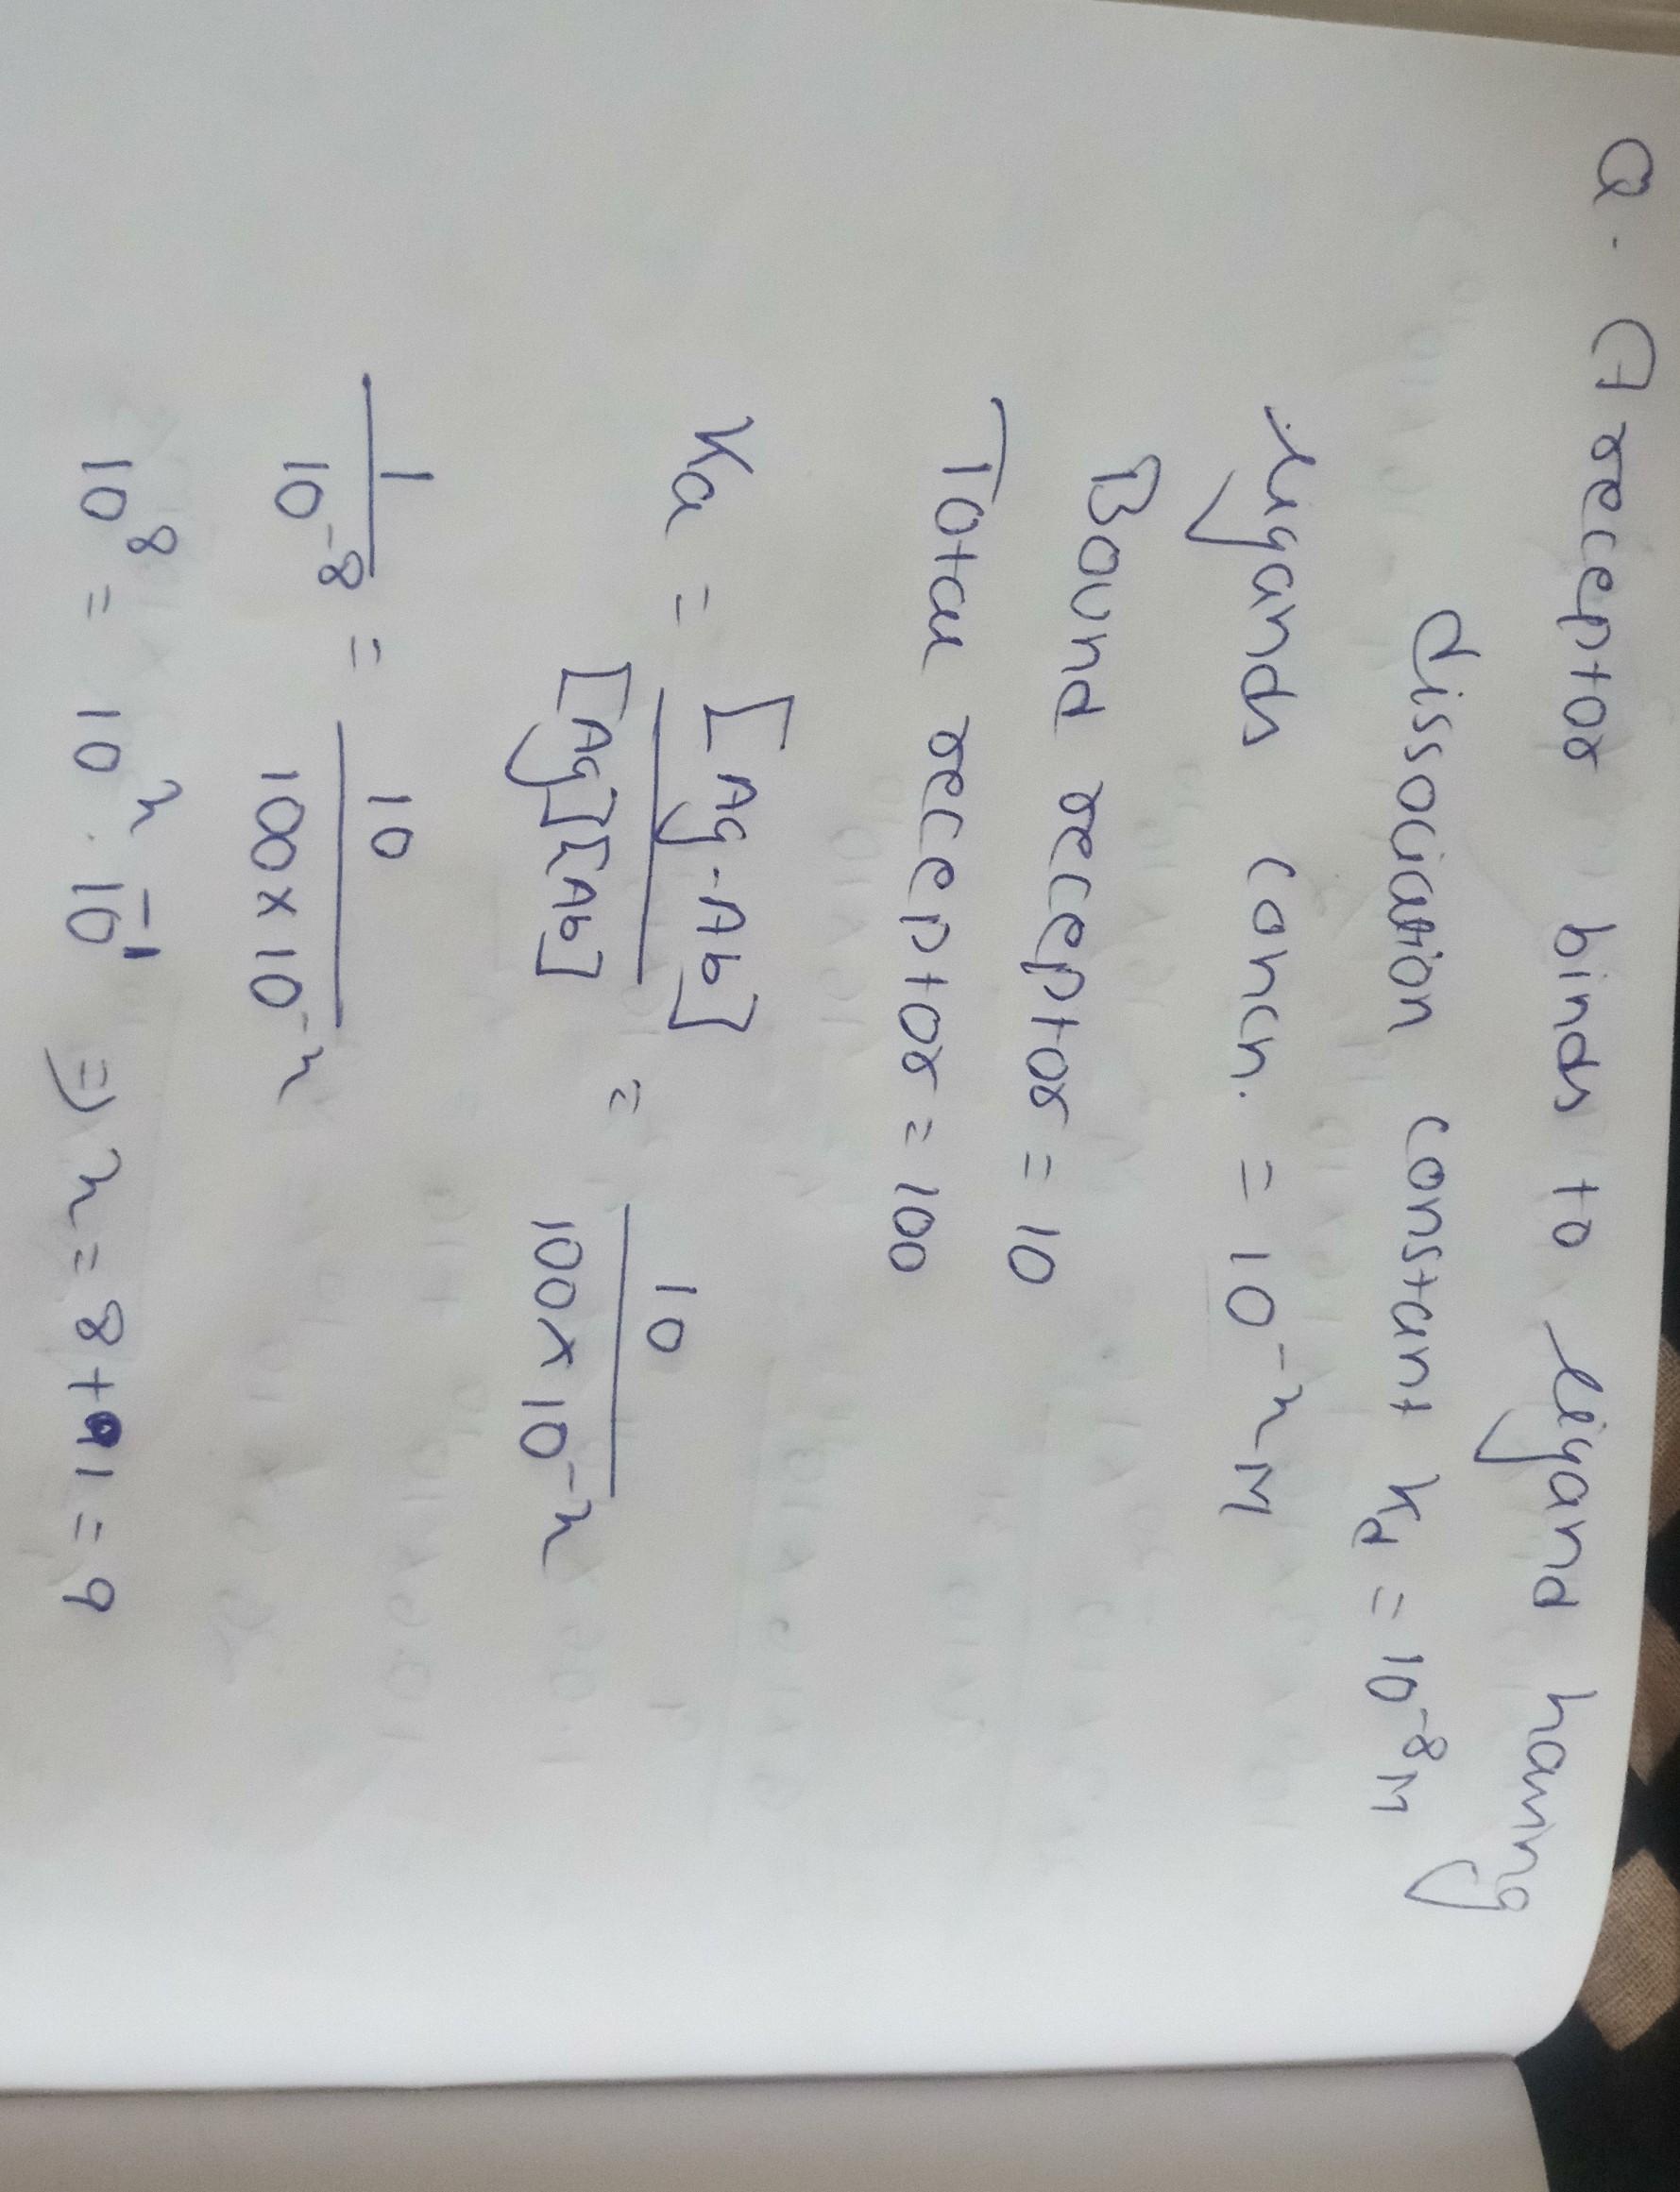 Q. A receptor binds to ligand having
dissociation constant Kd = 10⁻⁸M
ligands concn. = 10⁻ⁿM
Bound receptor = 10
Total receptor = 100
Ka = [Ag-Ab] / [Ag][Ab] = 10 / 100×10⁻ⁿ
1 / 10⁻⁸ = 10 / 100×10⁻ⁿ
10⁸ = 10ⁿ · 10⁻¹ ⇒ n = 8+1 = 9